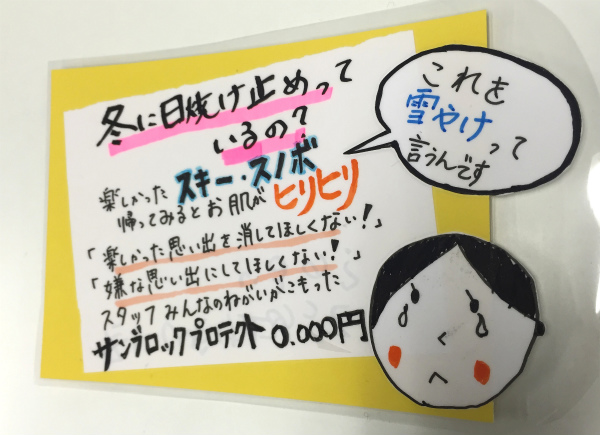 冬に日焼け止めって
いるの？
楽しかった スキー・スノボ
帰ってみるとお肌が ヒリヒリ
「楽しかった思い出を消してほしくない！」
「嫌な思い出にしてほしくない！」
スタッフみんなのねがいがこもった
サンブロックプロテクト 0.000円
これを
雪やけって
言うんです